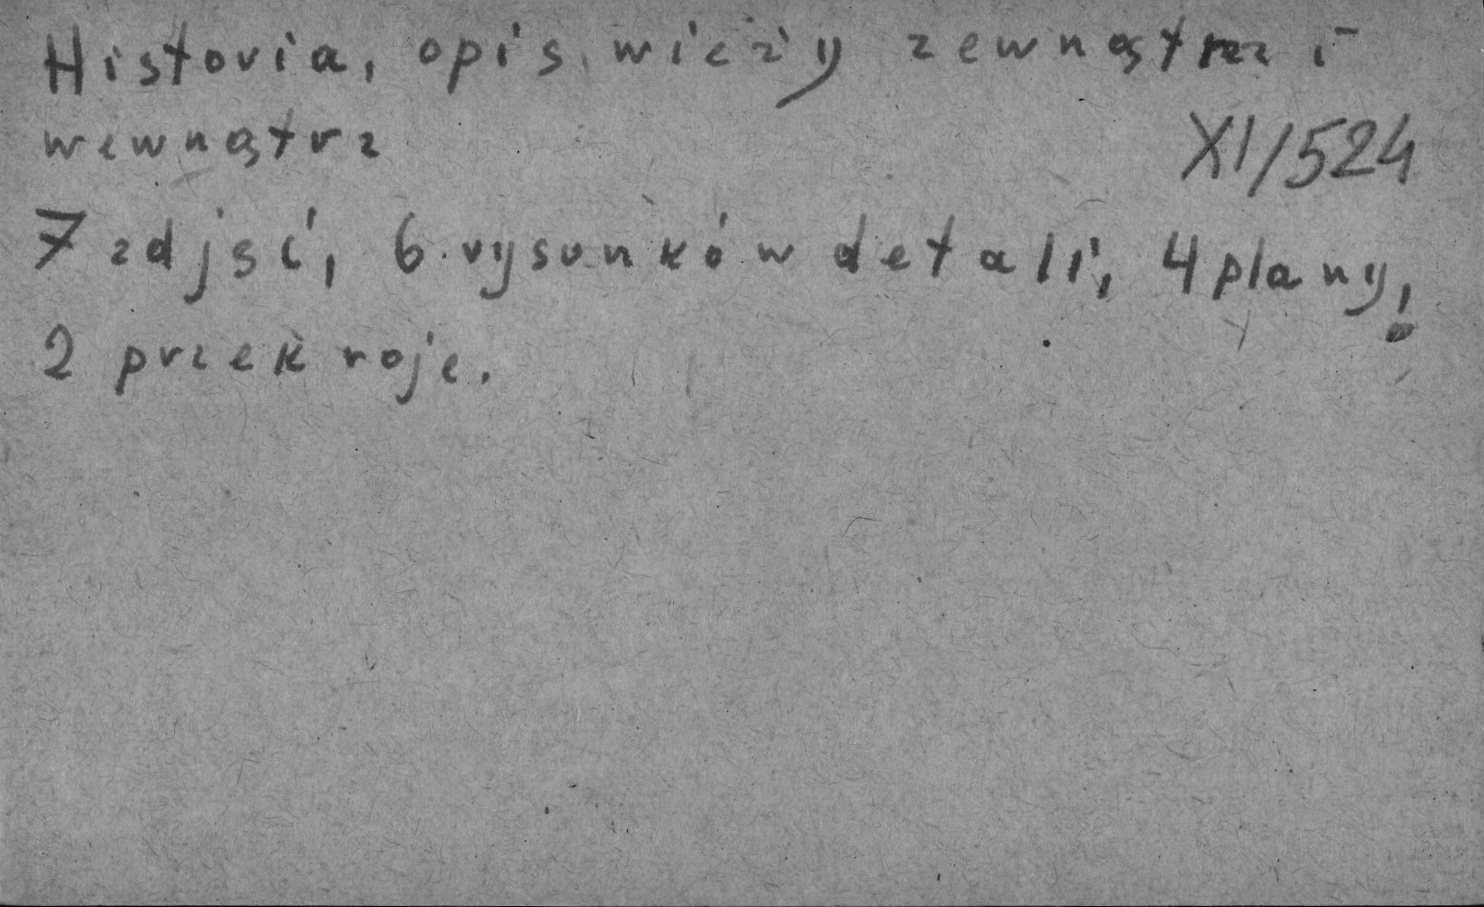 Historia, opis wieży zewnątrz i
wewnątrz
XI/524
7 zdjęć, 6 rysunków detali, 4 plany,
2 przekroje.